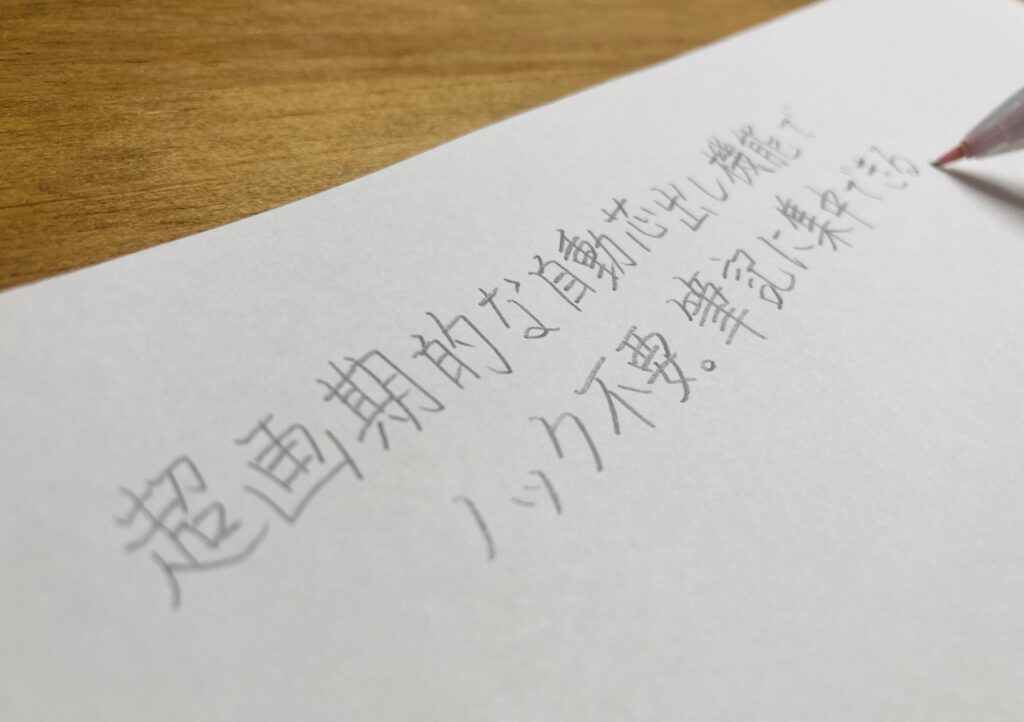 超画期的な自動芯出し機能で
ノック不要。筆記に集中できる